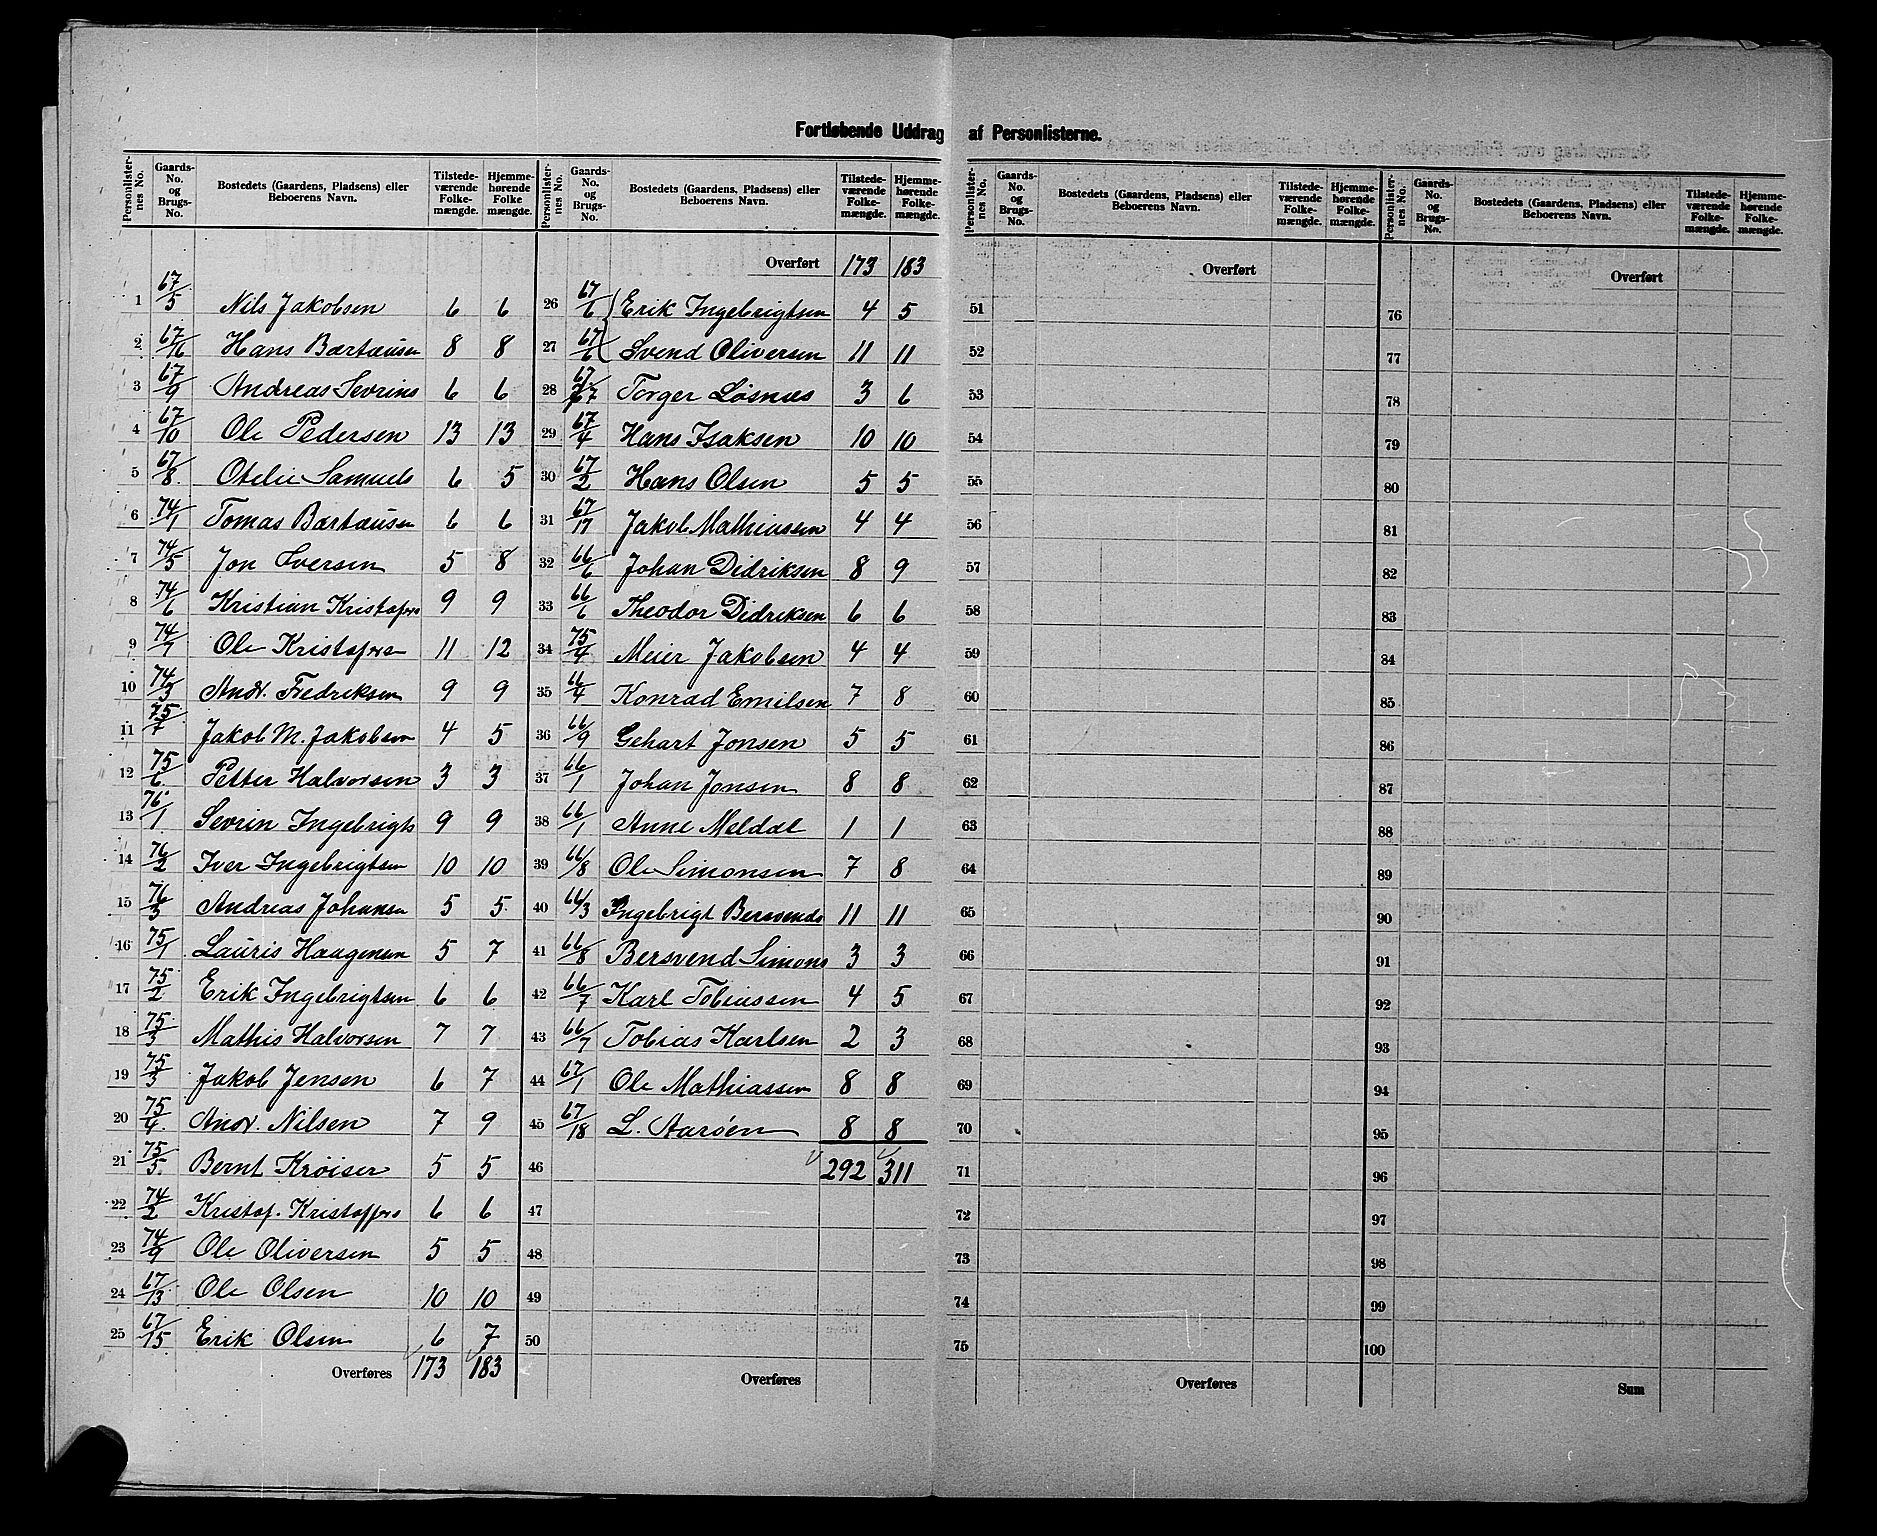 Fortløbende Uddrag af Personlisterne.
Personlister-nes No. | Gaards-No. og Brugs-No. | Bostedets (Gaardens, Pladsens) eller Beboerens Navn. | Tilstede-værende Folke-mængde. | Hjemme-hørende Folke mængde.
1 67/5 Nils Jakobsen 6 6
2 67/16 Hans Bærtausen 8 8
3 67/9 Andreas Sevrins 6 6
4 67/10 Ole Pedersen 13 13
5 67/8 Otelie Samuels 6 5
6 74/1 Tomas Bærtausen 6 6
7 74/5 Jon Iversen 5 8
8 74/6 Kristian Kristofers 9 9
9 74/7 Ole Kristofers 11 12
10 74/3 Andr. Fredriksen 9 9
11 75/7 Jakob M. Jakobsen 4 5
12 75/6 Petter Halvorsen 3 3
13 76/1 Sevrin Ingebrigts 9 9
14 76/2 Iver Ingebrigtsen 10 10
15 76/3 Andreas Johansen 5 5
16 75/1 Lauris Haagensen 5 7
17 75/2 Erik Ingebrigtsen 6 6
18 75/3 Mathis Halvorsen 7 7
19 75/3 Jakob Jensen 6 7
20 75/4 Andr. Nilsen 7 9
21 75/5 Bernt Krøiser 5 5
22 74/2 Kristof. Kristoffers 6 6
23 74/9 Ole Oliversen 5 5
24 67/13 Ole Olsen 10 10
25 67/15 Erik Olsen 6 7
Overføres 173 183
Personlister-nes No. | Gaards-No. og Brugs-No. | Bostedets (Gaardens, Pladsens) eller Beboerens Navn. | Tilstede-værende Folke-mængde. | Hjemme-hørende Folke-mængde.
Overført 173 183
26 67/6 Erik Ingebrigtsen 4 5
27 67/6 Svend Oliversen 11 11
28 67/7 Torger Løsnæs 3 6
29 67/4 Hans Isaksen 10 10
30 67/2 Hans Olsen 5 5
31 67/17 Jakob Mathiassen 4 4
32 66/6 Johan Didriksen 8 9
33 66/6 Theodor Didriksen 6 6
34 75/4 Meier Jakobsen 4 4
35 66/4 Konrad Emilsen 7 8
36 66/9 Gehart Jonsen 5 5
37 66/1 Johan Jonsen 8 8
38 66/1 Anne Meldal 1 1
39 66/8 Ole Simonsen 7 8
40 66/3 Ingebrigt Bersvends 11 11
41 66/8 Bersvend Simons 3 3
42 66/7 Karl Tobiassen 4 5
43 66/7 Tobias Karlsen 2 3
44 67/1 Ole Mathiassen 8 8
45 67/18 L. Aarøen 8 8
46 292 311
47
48
49
50
Overføres
Personlister-nes No. | Gaards-No. og Brugs-No. | Bostedets (Gaardens, Pladsens) eller Beboerens Navn. | Tilstede-værende Folke-mængde. | Hjemme-hørende Folke-mængde.
Overført
51
52
53
54
55
56
57
58
59
60
61
62
63
64
65
66
67
68
69
70
71
72
73
74
75
Overføres
Personlister-nes No. | Gaards-No. og Brugs-No. | Bostedets (Gaardens, Pladsens) eller Beboerens Navn. | Tilstede-værende Folke-mængde. | Hjemme-hørende Folke-mængde.
Overført
76
77
78
79
80
81
82
83
84
85
86
87
88
89
90
91
92
93
94
95
96
97
98
99
100
Sum